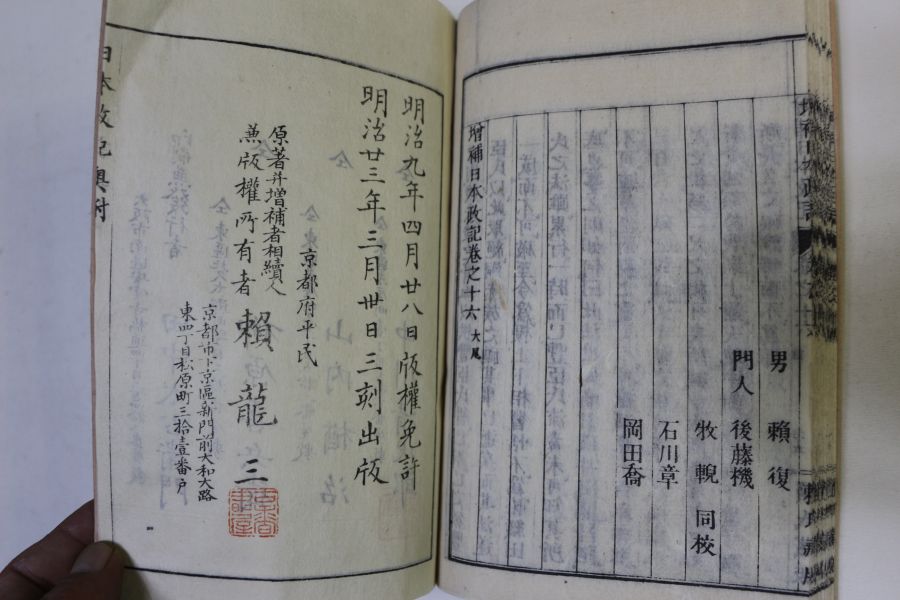 男 賴復
門人 後藤機
牧輗 同校
石川章
岡田喬
增補日本政記卷之十六 大尾
明治九年四月廿八日版權免許
明治廿三年三月廿日三刻出版
京都府平民
原著并增補者相續人
兼版權所有者 賴龍三
京都市下京區新門前大和大路
東四丁目松原町三拾壹番戶
日本政記奥付